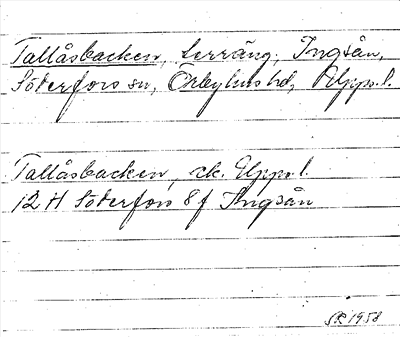 Tallåsbacken, terräng, Ingsån,
Söderfors sn, Örbyhus hd, Uppsl.
Tallåsbacken, ek. Uppsl.
12 H Söderfors 8 f Ingsån
SR 1958